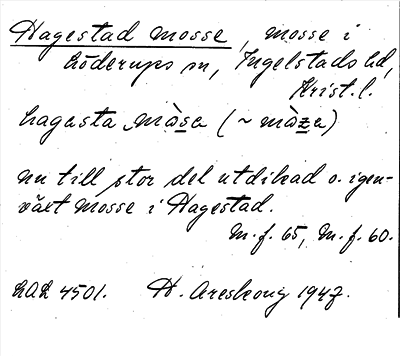 Hagestad mosse, mosse i
Löderups sn, Ingelstads hd,
Krist. l.
hagasta màsa (~ màza)
nu till stor del utdikad o. igen-
växt mosse i Hagestad.
M.f. 65, M.f. 60.
LAL 4501. H. Areskoug 1947.